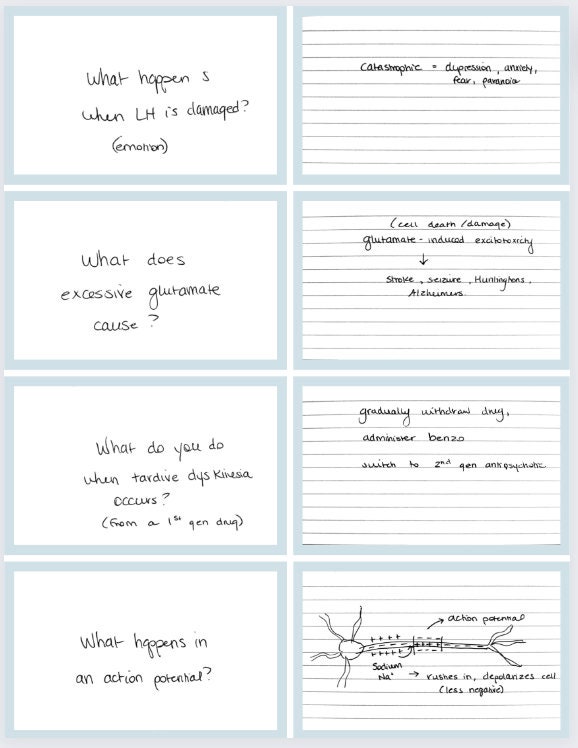 What happens
when LH is damaged?
(emotion)
Catastrophic = depression, anxiety,
fear, paranoia
What does
excessive glutamate
cause?
(cell death/damage)
glutamate-induced excitotoxicity
↓
Stroke, seizure, Huntingtons,
Alzheimers
What do you do
when tardive dyskinesia
occurs?
(From a 1st gen drug)
gradually withdraw drug,
administer benzo
switch to 2nd gen antipsychotic
What happens in
an action potential?
→ action potential
++++
+++++
+++
Sodium
Na+ → rushes in, depolarizes cell
(less negative)